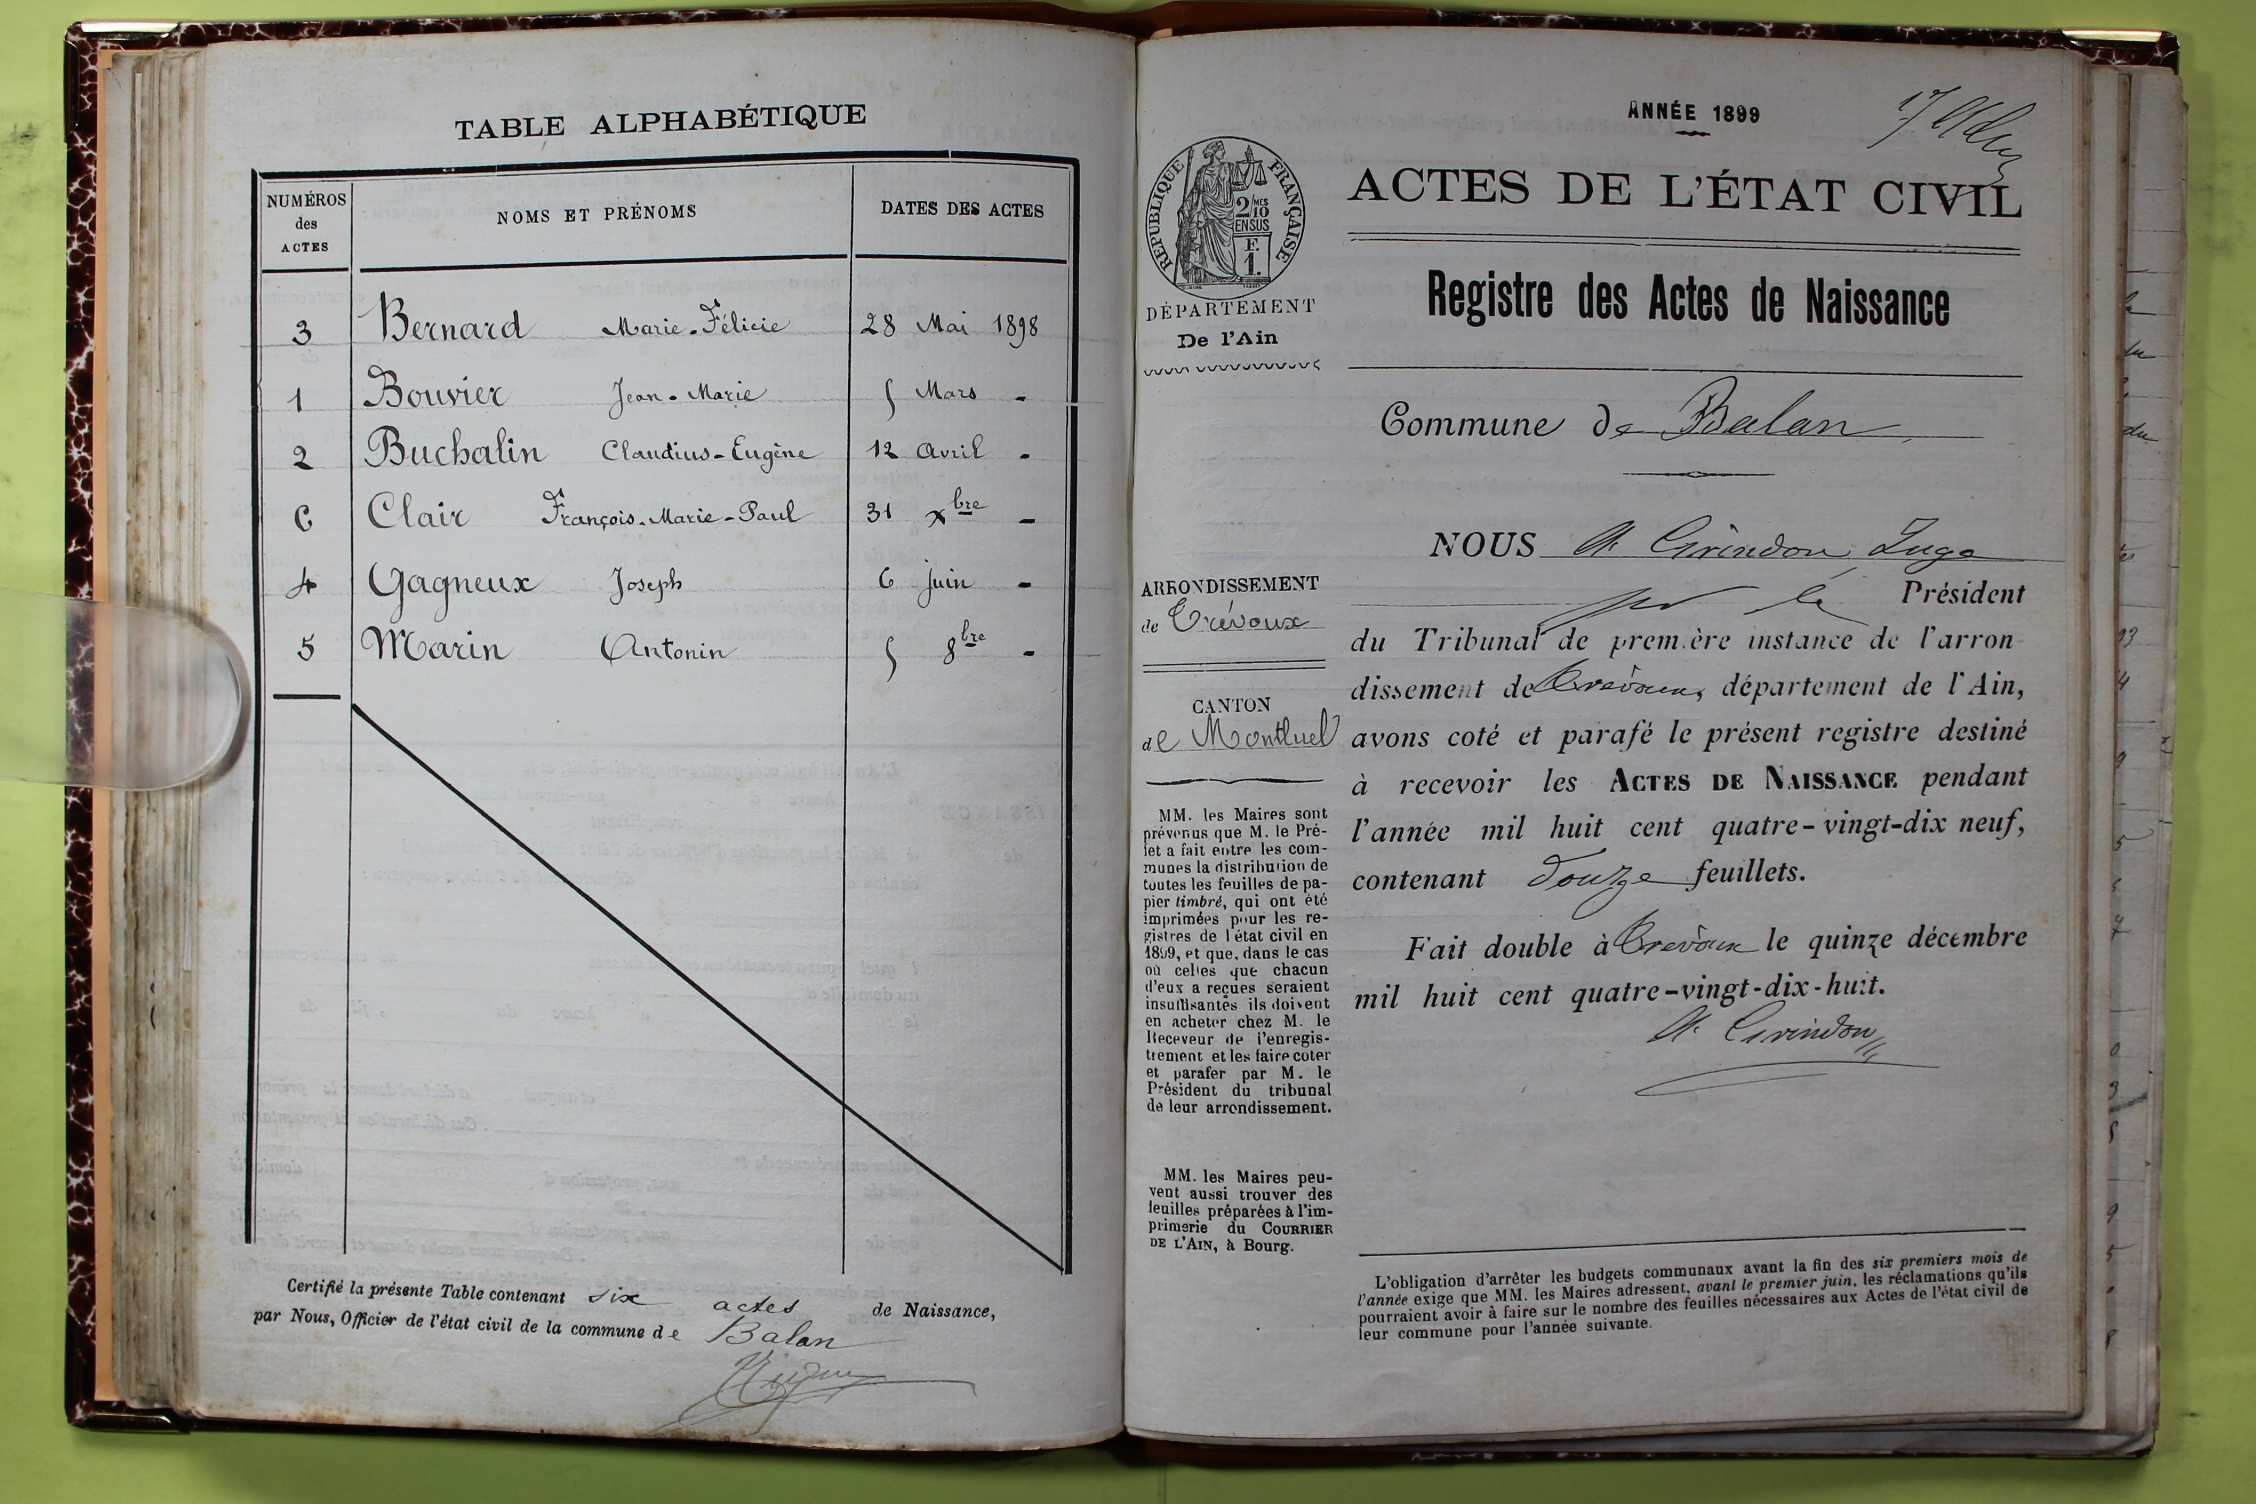 TABLE ALPHABÉTIQUE
NUMÉROS des ACTES
NOMS ET PRÉNOMS
DATES DES ACTES
3 Bernard Marie-Félicie 28 Mai 1898
1 Bouvier Jean-Marie 5 Mars -
2 Buchalin Claudius-Eugène 12 Avril -
6 Clair François-Marie-Paul 31 xbre -
4 Gagneux Joseph 6 juin -
5 Marin Antonin 5 8bre -
Certifié la présente Table contenant six actes de Naissance,
par Nous, Officier de l'état civil de la commune de Balan
ANNÉE 1899
RÉPUBLIQUE FRANÇAISE
2/10 MES
EN SUS
F.
1.
DÉPARTEMENT
De l'Ain
ARRONDISSEMENT
de Trévoux
CANTON
de Montluel
MM. les Maires sont
prévenus que M. le Pré-
fet a fait entre les com-
munes la distribution de
toutes les feuilles de pa-
pier timbré, qui ont été
imprimées pour les re-
gistres de l'état civil en
1899, et que, dans le cas
où celles que chacun
d'eux a reçues seraient
insuffisantes ils doivent
en acheter chez M. le
Receveur de l'enregis-
trement et les faire coter
et parafer par M. le
Président du tribunal
de leur arrondissement.
MM. les Maires peu-
vent aussi trouver des
feuilles préparées à l'im-
primerie du COURRIER
DE L'AIN, à Bourg.
ACTES DE L'ÉTAT CIVIL
Registre des Actes de Naissance
Commune de Balan
NOUS A. Girindon Juge
pr le Président
du Tribunal de première instance de l'arron-
dissement de Trévoux, département de l'Ain,
avons coté et parafé le présent registre destiné
à recevoir les ACTES DE NAISSANCE pendant
l'année mil huit cent quatre-vingt-dix neuf,
contenant douze feuillets.
Fait double à Trévoux le quinze décembre
mil huit cent quatre-vingt-dix-huit.
A. Girindon
L'obligation d'arrêter les budgets communaux avant la fin des six premiers mois de
l'année exige que MM. les Maires adressent, avant le premier juin, les réclamations qu'ils
pourraient avoir à faire sur le nombre des feuilles nécessaires aux Actes de l'état civil de
leur commune pour l'année suivante.